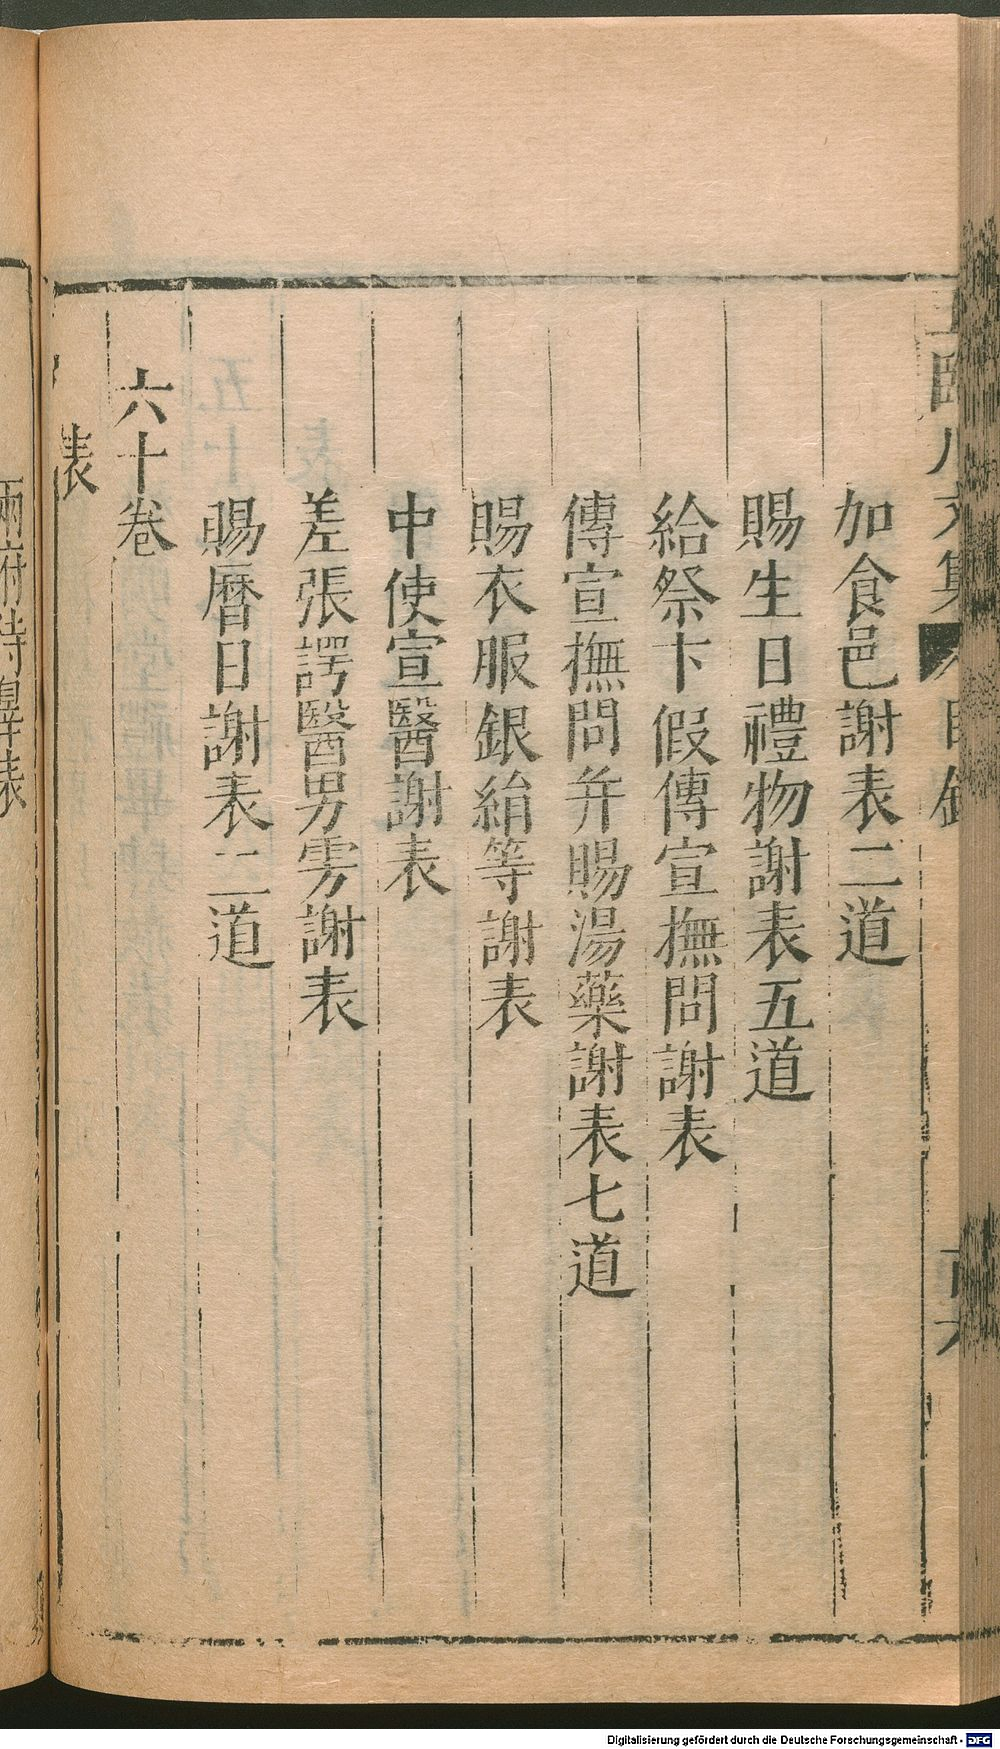 加食邑謝表二道
賜生日禮物謝表五道
給祭卞假傳宣撫問謝表
傳宣撫問并賜湯藥謝表七道
賜衣服銀絹等謝表
中使宣醫謝表
差張諤醫男雱謝表
賜曆日謝表二道
六十卷
表
兩府待罪表
Digitalisierung gefördert durch die Deutsche Forschungsgemeinschaft - DFG